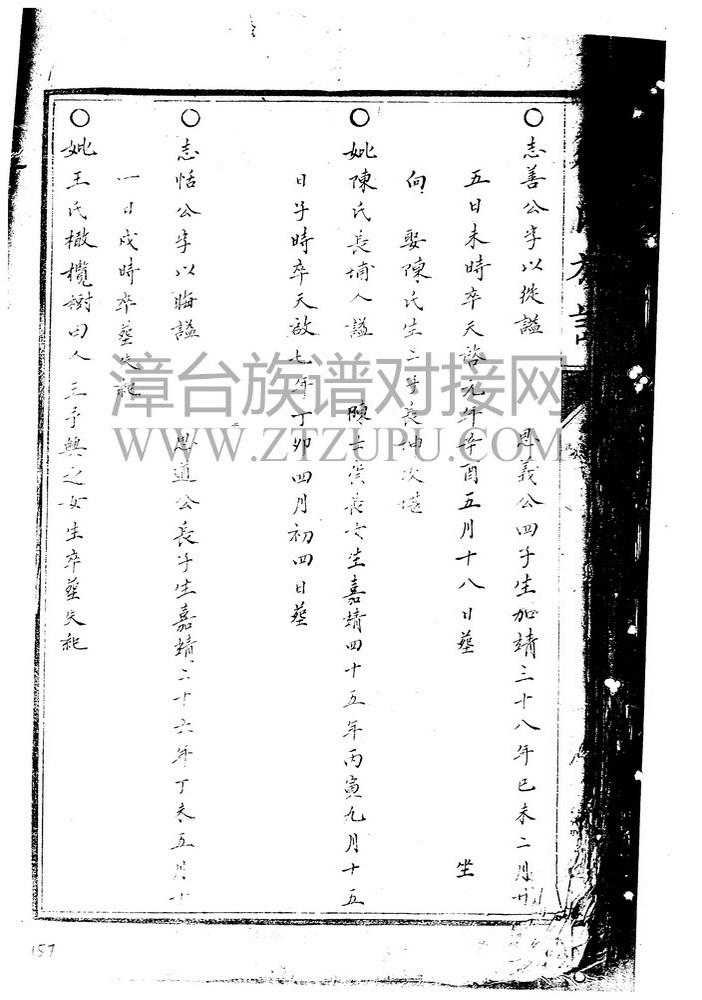 志善公字以從謚　恩義公四子生加靖三十八年已未二月廿
五日未時卒天啓元年辛酉五月十八日塟　坐
向　娶陳氏生二子長
妣陳氏長埔人謚　陳士　長女生嘉靖四十五年丙寅九月十五
日子時卒天啟七年丁卯四月初四日塟
志恬公字以晦謚　思道公長子生嘉靖二十六年丁未五月十
一日戌時卒塟失紀
妣王氏橄欖樹田人　三子興之女生卒塟失紀
漳台族谱对接网
WWW.ZTZUPU.COM
157